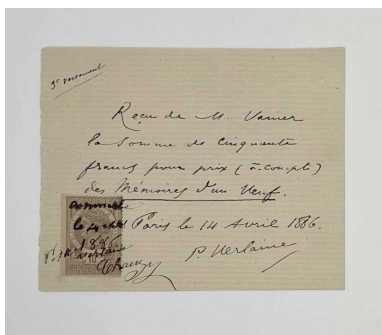 3e versement
Reçu de M. Vanier
la somme de cinquante
francs pour prix (à-compte)
des Mémoires d'un Veuf.
Paris le 14 Avril 1886.
P. Verlaine
le 14
1886
Verlaine
10